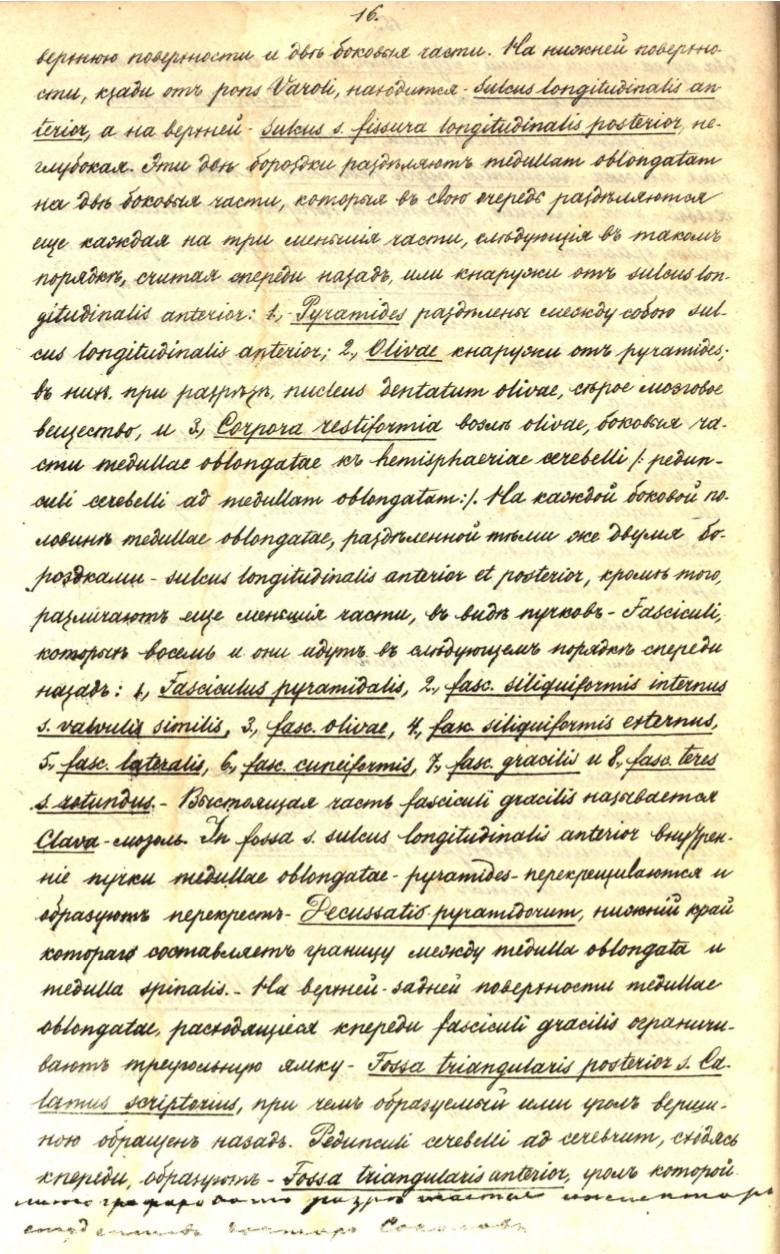 16.
верхнюю поверхности и двѣ боковыя части. На нижней поверхно-
сти, кзади отъ pons Varoli, находится - Sulcus longitudinalis an-
terior, а на верхней - Sulcus s. fissura longitudinalis posterior, не-
глубокая. Эти двѣ бороздки раздѣляютъ medullam oblongatam
на двѣ боковыя части, которыя въ свою очередь раздѣляются
еще каждая на три меньшія части, слѣдующія въ такомъ
порядкѣ, считая спереди назадъ, или кнаружи отъ sulcus lon-
gitudinalis anterior: 1, Pyramides раздѣлены между собою sul-
cus longitudinalis anterior; 2, Olivae кнаружи отъ pyramides;
въ нихъ при разрѣзѣ, nucleus dentatum olivae, сѣрое мозговое
вещество, и 3, Corpora restiformia возлѣ olivae, боковыя ча-
сти medullae oblongatae къ hemisphaeriae cerebelli /: pedun-
culi cerebelli ad medullam oblongatam:/. На каждой боковой по-
ловинѣ medullae oblongatae, раздѣленной тѣми же двумя бо-
роздками - sulcus longitudinalis anterior et posterior, кромѣ того,
различаютъ еще меньшія части, въ видѣ пучковъ - Fasciculi,
которыхъ восемь и они идутъ въ слѣдующемъ порядкѣ спереди
назадъ: 1, Fasciculus pyramidalis, 2, fasc. siliquiformis internus
s. valvulis similis, 3, fasc. olivae, 4, fasc. siliquiformis externus,
5, fasc. lateralis, 6, fasc. cuneiformis, 7, fasc. gracilis и 8, fasc. teres
s. rotundus. - Выстоящая часть fasciculi gracilis называется
Clava - мозоль. In fossa s. sulcus longitudinalis anterior внутрен-
ніе пучки medullae oblongatae - pyramides - перекрещиваются и
образуютъ перекрестъ - Decussatio pyramidorum, нижній край
котораго составляетъ границу между medulla oblongata и
medulla spinalis. - На верхней-задней поверхности medullae
oblongatae, расходящіеся кпереди fasciculi gracilis ограничи-
ваютъ треугольную ямку - Fossa triangularis posterior s. Ca-
lamus scriptorius, при чемъ образуемый ими уголъ верши-
ною обращенъ назадъ. Pedunculi cerebelli ad cerebrum, сходясь
кпереди, образуютъ - Fossa triangularis anterior, уголъ которой
литографировать разрѣшается инспекторъ
студентовъ докторъ